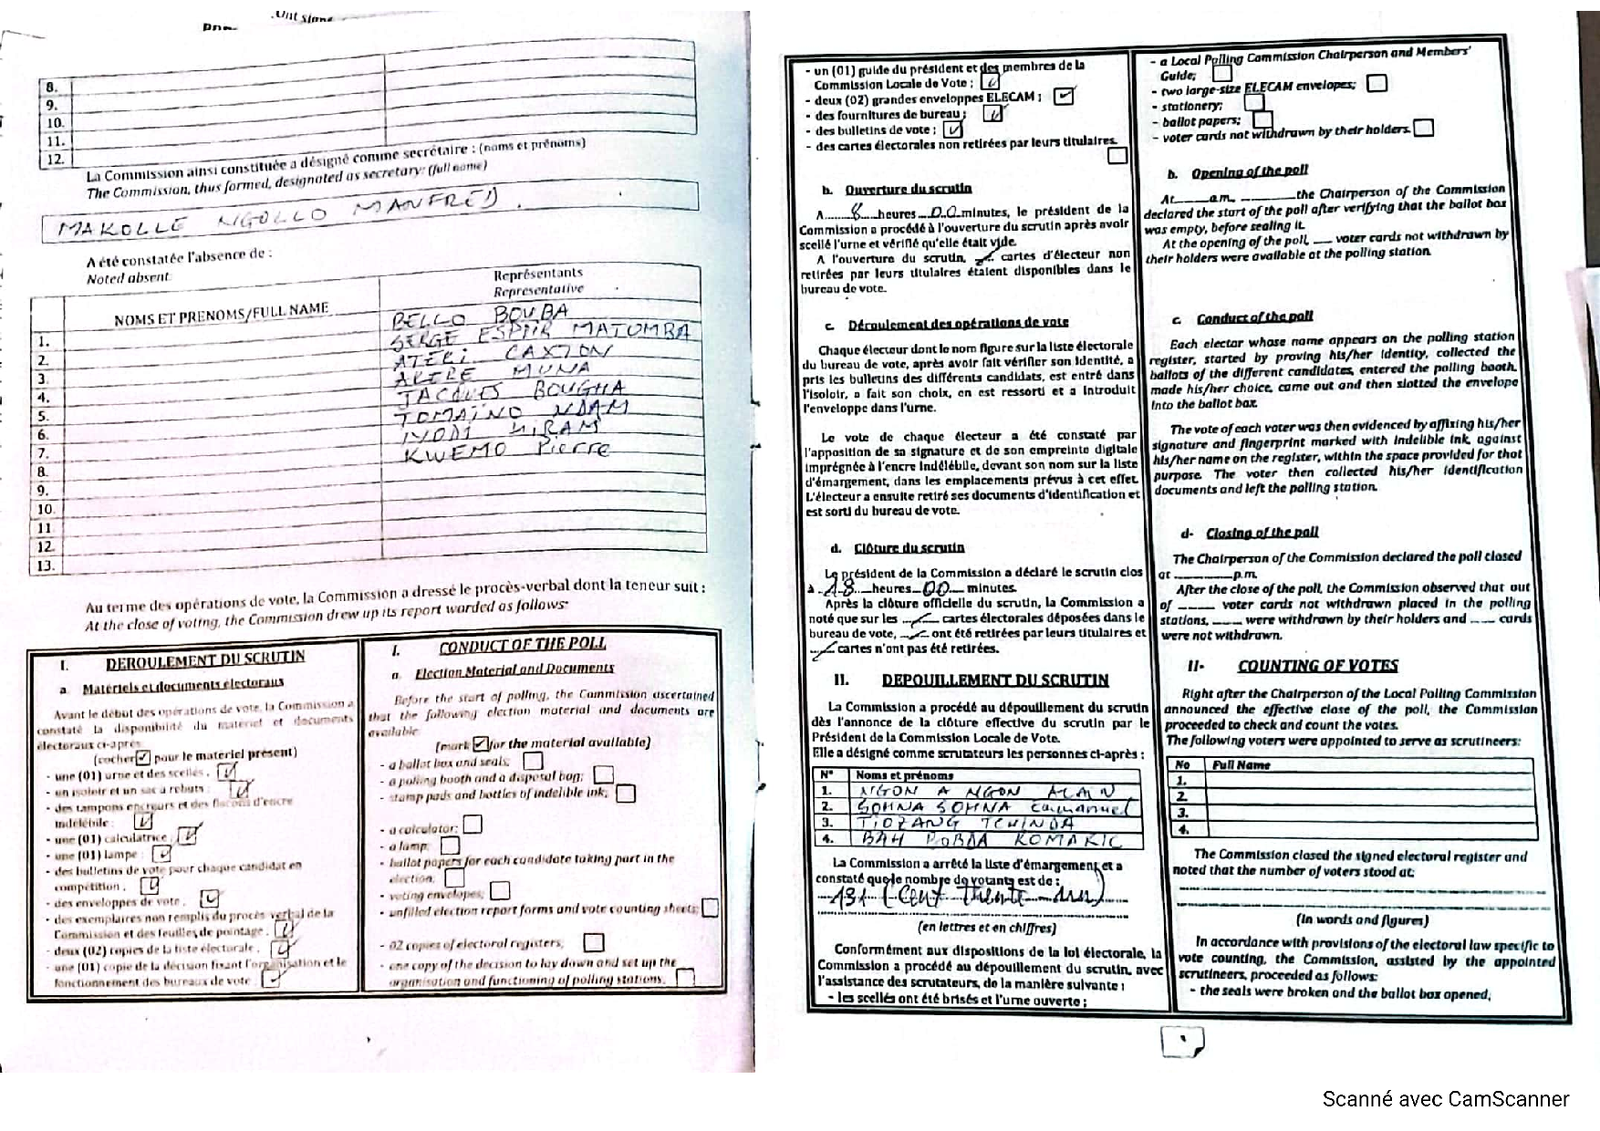 8.
9.
10.
11.
12.
La Commission ainsi constituée a désigné comme secrétaire : (noms et prénoms)
The Commission, thus formed, designated as secretary: (full name)
MAKOLLE NGOLLO MANFRED.
A été constatée l'absence de :
Noted absent:
NOMS ET PRENOMS/FULL NAME
Représentants
Representative
BELLO BOUBA
1. SERGE ESPOIR MATOMBA
2. ATEKI CAXTON
3. AKERE MUNA
4. JACQUES BOUGHA
5. TOMAÏNO NDAM
6. IYODI HIRAM
7. KWEMO Pierre
8.
9.
10.
11
12.
13.
Au terme des opérations de vote, la Commission a dressé le procès-verbal dont la teneur suit :
At the close of voting, the Commission drew up its report worded as follows:
I. DEROULEMENT DU SCRUTIN
a. Matériels et documents électoraux
Avant le début des opérations de vote, la Commission a
constaté la disponibilité du matériel et documents
électoraux ci-après
(cocher ✓ pour le materiel présent)
- une (01) urne et des scellés ; ✓
- un isoloir et un sac à rebuts ; ✓
- des tampons encreurs et des flacons d'encre
indélébile ; ✓
- une (01) calculatrice ; ✓
- une (01) lampe ; ✓
- des bulletins de vote pour chaque candidat en
compétition ; ✓
- des enveloppes de vote ; ✓
- des exemplaires non remplis du procès verbal de la
Commission et des feuilles de pointage ; ✓
- deux (02) copies de la liste électorale ; ✓
- une (01) copie de la décision fixant l'organisation et le
fonctionnement des bureaux de vote ; ✓
I. CONDUCT OF THE POLL
a. Election Material and Documents
Before the start of polling, the Commission ascertained
that the following election material and documents are
available:
(mark ✓ for the material available)
- a ballot box and seals;
- a polling booth and a disposal bag;
- stamp pads and bottles of indelible ink;
- a calculator;
- a lamp;
- ballot papers for each candidate taking part in the
election;
- voting envelopes;
- unfilled election report forms and vote counting sheets;
- 02 copies of electoral registers;
- one copy of the decision to lay down and set up the
organisation and functioning of polling stations.
- un (01) guide du président et des membres de la
Commission Locale de Vote ; ✓
- deux (02) grandes enveloppes ELECAM ; ✓
- des fournitures de bureau ; ✓
- des bulletins de vote ; ✓
- des cartes électorales non retirées par leurs titulaires.
b. Ouverture du scrutin
A 8 heures 00 minutes, le président de la
Commission a procédé à l'ouverture du scrutin après avoir
scellé l'urne et vérifié qu'elle était vide.
A l'ouverture du scrutin, cartes d'électeur non
retirées par leurs titulaires étaient disponibles dans le
bureau de vote.
c. Déroulement des opérations de vote
Chaque électeur dont le nom figure sur la liste électorale
du bureau de vote, après avoir fait vérifier son identité, a
pris les bulletins des différents candidats, est entré dans
l'isoloir, a fait son choix, en est ressorti et a introduit
l'enveloppe dans l'urne.
Le vote de chaque électeur a été constaté par
l'apposition de sa signature et de son empreinte digitale
imprégnée à l'encre indélébile, devant son nom sur la liste
d'émargement, dans les emplacements prévus à cet effet.
L'électeur a ensuite retiré ses documents d'identification et
est sorti du bureau de vote.
d. Clôture du scrutin
Le président de la Commission a déclaré le scrutin clos
à 18 heures 00 minutes.
Après la clôture officielle du scrutin, la Commission a
noté que sur les cartes électorales déposées dans le
bureau de vote, ont été retirées par leurs titulaires et
cartes n'ont pas été retirées.
II. DEPOUILLEMENT DU SCRUTIN
La Commission a procédé au dépouillement du scrutin
dès l'annonce de la clôture effective du scrutin par le
Président de la Commission Locale de Vote.
Elle a désigné comme scrutateurs les personnes ci-après :
N° Noms et prénoms
1. NGON A NGON ALAIN
2. SOHNA SOHNA Emmanuel
3. TIOZANG TCHINDA
4. BAH ROMARIC
La Commission a arrêté la liste d'émargement et a
constaté que le nombre de votants est de :
131 (Cent trente-un)
(en lettres et en chiffres)
Conformément aux dispositions de la loi électorale, la
Commission a procédé au dépouillement du scrutin, avec
l'assistance des scrutateurs, de la manière suivante :
- les scellés ont été brisés et l'urne ouverte ;
- a Local Polling Commission Chairperson and Members'
Guide;
- two large-size ELECAM envelopes;
- stationery;
- ballot papers;
- voter cards not withdrawn by their holders.
b. Opening of the poll
At____am, ____the Chairperson of the Commission
declared the start of the poll after verifying that the ballot box
was empty, before sealing it.
At the opening of the poll, ___ voter cards not withdrawn by
their holders were available at the polling station.
c. Conduct of the poll
Each elector whose name appears on the polling station
register, started by proving his/her identity, collected the
ballots of the different candidates, entered the polling booth,
made his/her choice, came out and then slotted the envelope
into the ballot box.
The vote of each voter was then evidenced by affixing his/her
signature and fingerprint marked with indelible ink, against
his/her name on the register, within the space provided for that
purpose. The voter then collected his/her identification
documents and left the polling station.
d- Closing of the poll
The Chairperson of the Commission declared the poll closed
at ________p.m.
After the close of the poll, the Commission observed that out
of _____ voter cards not withdrawn placed in the polling
stations, ____ were withdrawn by their holders and ____ cards
were not withdrawn.
II- COUNTING OF VOTES
Right after the Chairperson of the Local Polling Commission
announced the effective close of the poll, the Commission
proceeded to check and count the votes.
The following voters were appointed to serve as scrutineers:
No Full Name
1.
2.
3.
4.
The Commission closed the signed electoral register and
noted that the number of voters stood at:
(In words and figures)
In accordance with provisions of the electoral law specific to
vote counting, the Commission, assisted by the appointed
scrutineers, proceeded as follows:
- the seals were broken and the ballot box opened,
Scanné avec CamScanner